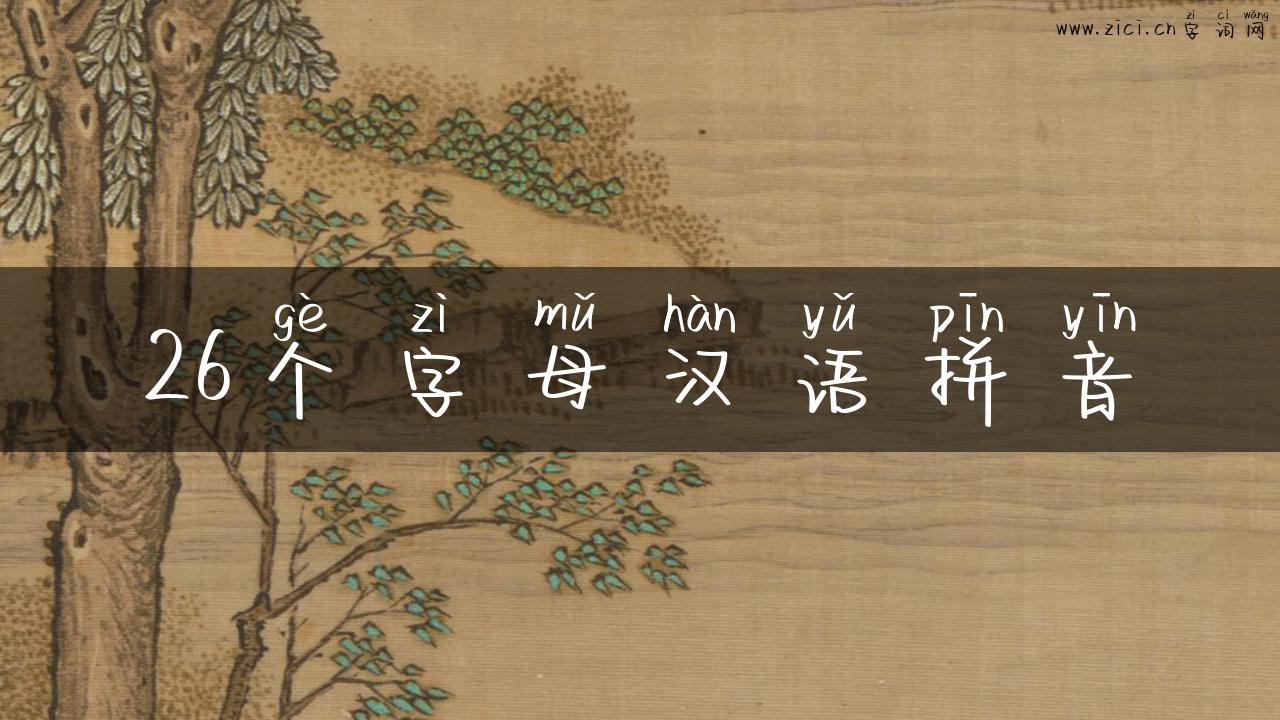 zì cí wǎng
www.zici.cn 字词网
gè zì mǔ hàn yǔ pīn yīn
26个字母汉语拼音